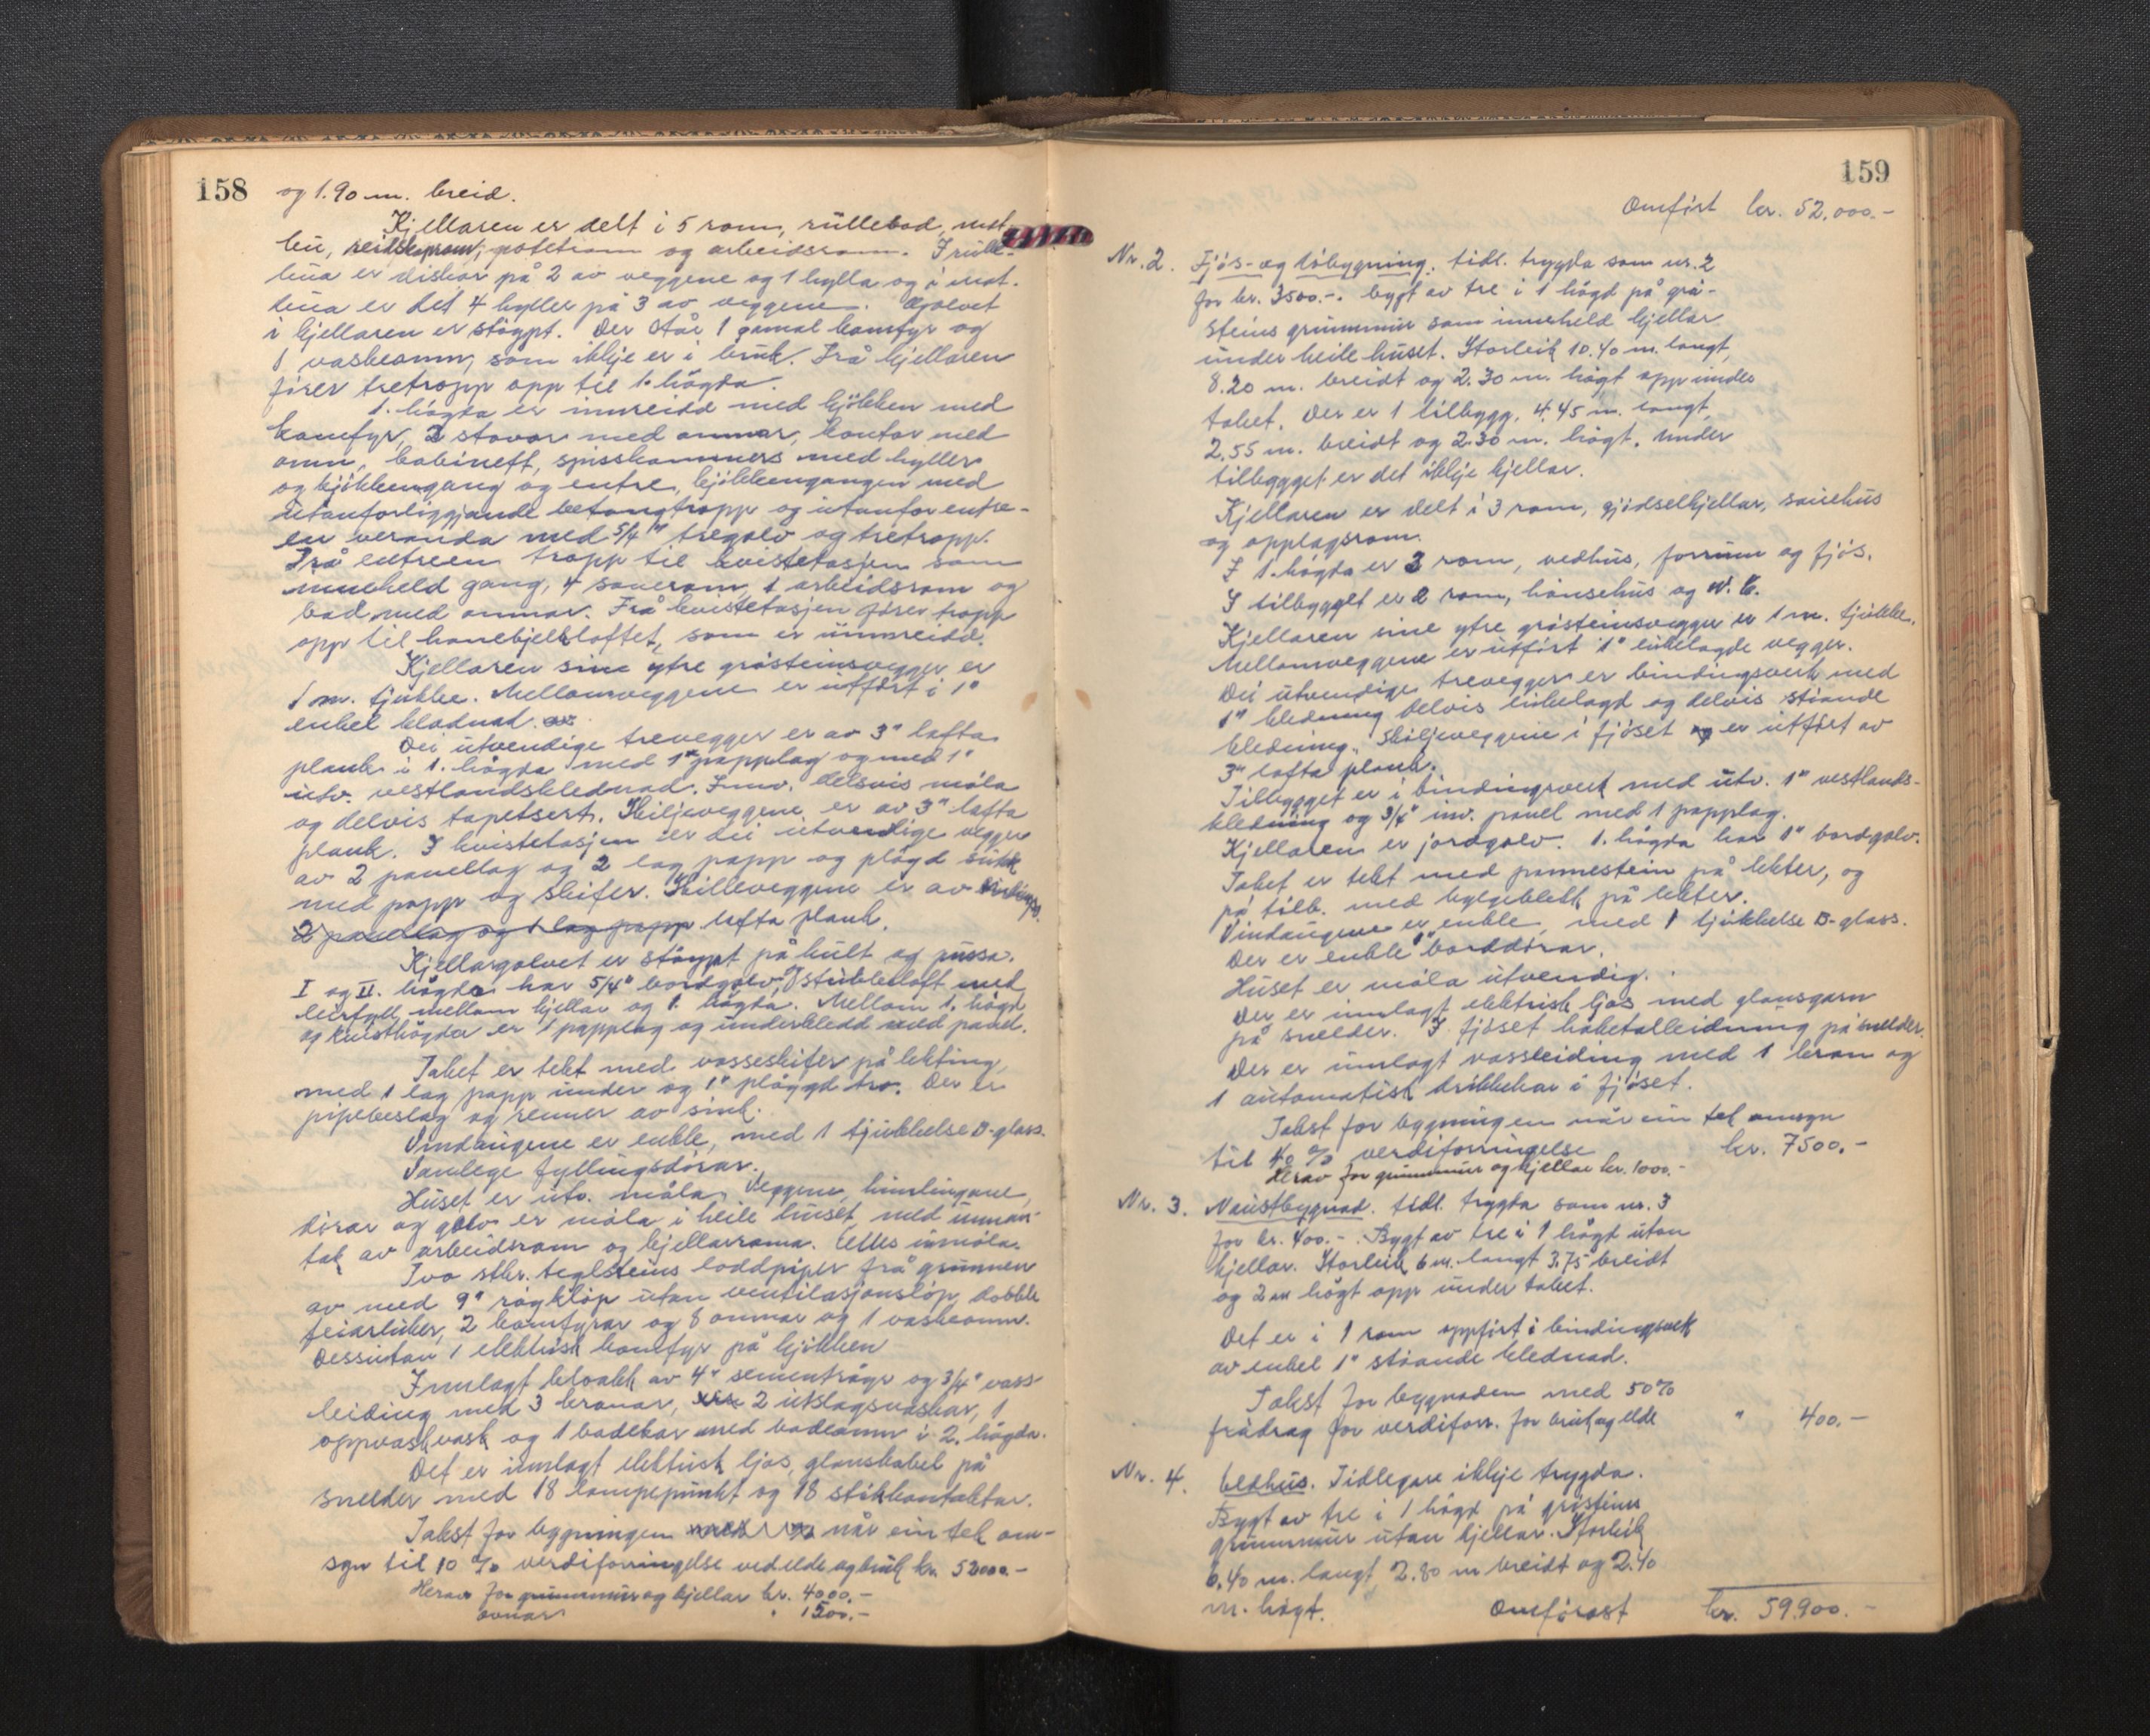 158
og 1.90 m. breid.
Kjellaren er delt i 5 rom, rüllebod, mat-
bu, reidskaprom, potetrom og arbeidsrom. I rülle-
bua er diskar på 2 av veggene og 1 hylla og i mat-
bua er det 4 hyller på 3 av veggene. Golvet
i kjellaren er støypt. Der står 1 gamal komfyr og
1 vaskeomn, som ikkje er i bruk. Frå kjellaren
fører tretropp opp til 1. högda.
1. högda er innreidd med kjökken med
komfyr, 2 stover med omnar, kontor med
omn, kabinett, spisskammers med hyller
og kjökkengang og entre, kjökkengangen med
utanforliggjande betongtropp og utanfor entre-
en veranda med 5/4" tregolv og tretropp.
Frå entreen tropp til kvistetasjen som
inneheld gang, 4 soverom, 1 arbeidsrom og
bad med omnar. Frå kvistetasjen förer tropp
opp til hanebjelkloftet, som er uinnreidd.
Kjellaren sine ytre gråsteinsvegger er
1 m. tjukke. Mellomveggene er utfört i 1"
enkel kladnad.
Dei utvendige trevegger er av 3" lafta
plank i 1. högda med 1 papplag og med 1"
utv. vestlandsklednad. Innv. delsvis måla
og delvis tapetsert. Skiljeveggene er av 3" lafta
plank. I kvistetasjen er dei utvendige vegger
av 2 panellag og 2 lag papp og plögd
med papp og skifer. Skilleveggene er av
2 panellag og 1 lag papp lafta plank.
Kjellargolvet er støypt på kult og pussa.
I og II. högda har 5/4" bordgolv, Stubbeloft med
leirfyll mellom kjellar og 1. högda. Mellom 1. högd
og kvisthögda er 1 papplag og underkledd med panel.
Taket er tekt med vosseskifer på lekting
med 1 lag papp under og 1" plöggd tro. Der er
pipebeslag og renner av sink.
Vindaugene er enkle, med 1 tjukkelse B-glass.
Vanlege fyllingsdörar.
Huset er utv. måla. Veggene, himlingane,
dörar og golv er måla i heile huset, med unnan-
tak av arbeidsrom og kjellarroma. Elles umåla.
Tvo stkr. teglsteins loddpiper frå grunnen
av med 9" röykløp utan ventilasjonsløp, dobble
feiarluker, 2 komfyrar og 8 omnar og 1 vaskeomn.
Dessutan 1 elektrisk komfyr på kjökken
Innlagt kloakk av 4" sementrøyr og 3/4" vass-
leiding med 3 kranar, 2 utslagsvaskar, 1
oppvaskvask og 1 badekar med badeomn i 2. högda.
Det er innlagt elektrisk ljos, glanskabel på
snelder med 18 lampepunkt og 18 stikkontaktar.
Takst for bygningen når ein tek om-
syn til 10 % verdiforringelse ved elde og bruk kr. 52000.-
Herav for grunnmur og kjellar kr. 4000.-
ovnar " 1500.-
159
Omfört kr. 52.000.-
Nr. 2. Fjös- og löbygning, tidl. trygda som nr. 2
for kr. 3500.-. Bygt av tre i 1 högd på grå-
steins grunnmur som inneheld kjellar
under heile huset. Storleik 10.40 m. langt,
8.20 m. breidt og 2.30 m. högt opp under
taket. Der er 1 tilbygg, 4.45 m. langt,
2.55 m. breidt og 2.30 m. högt. Under
tilbygget er det ikkje kjellar.
Kjellaren er delt i 3 rom, gjödselkjellar, sauehus
og opplagsrom.
I 1. högda er 3 rom, vedhus, forrum og fjös.
I tilbygget er 2 rom, hönsehus og W.C.
Kjellaren sine ytre gråsteinsvegger er 1 m. tjukke.
Mellomveggene er utfört 1" enkelagde vegger.
Dei utvendige trevegger er bindingsverk med
1" kledning delvis enkelagd og delvis ståande
kledning. Skiljeveggene i fjöset er utfört av
3" lafta plank.
Tilbygget er i bindingsverk med utv. 1" vestlands-
kledning og 3/4" inv. panel med 1 papplag.
Kjellaren er jordgolv. 1. högda har 1" bordgolv.
Taket er tekt med pannestein på lekter, og
på tilb. med bylgeblekk på lekter.
Vindaugene er enkle, med 1 tjukkelse B-glass.
Der er enkle 1" borddörar.
Huset er måla utvendig.
Der er innlagt elektrisk ljos med glansgarn
på snelder. I fjöset kabelalleidning på snelder.
Der er innlagt vassleiding med 1 kran og
1 automatisk drikkekar i fjöset.
Takst for bygningen når ein tek omsyn
til 40 % verdiforringelse kr. 7500.-
Herav for grunnmur og kjellar kr. 1000.-
Nr. 3. Naustbygnad. tidl. trygda som nr. 3
for kr. 400.-. Bygt av tre i 1 högt utan
kjellar. Storleik 6 m. langt 3,75 breidt
og 2 m högt opp under taket.
Det er i 1 rom oppfört i bindingsverk
av enkel 1" ståande klednad.
Takst for bygnaden med 50%
frådrag for verdiforr. for bruk og elde " 400.-
Nr. 4. Eldhus. Tidlegare ikkje trygda.
Bygt av tre i 1 högd på gråsteins
grunnmur utan kjellar. Storleik
6.40 m. langt 2.80 m breidt og 2.40
m. högt. Omförast kr. 59.900.-